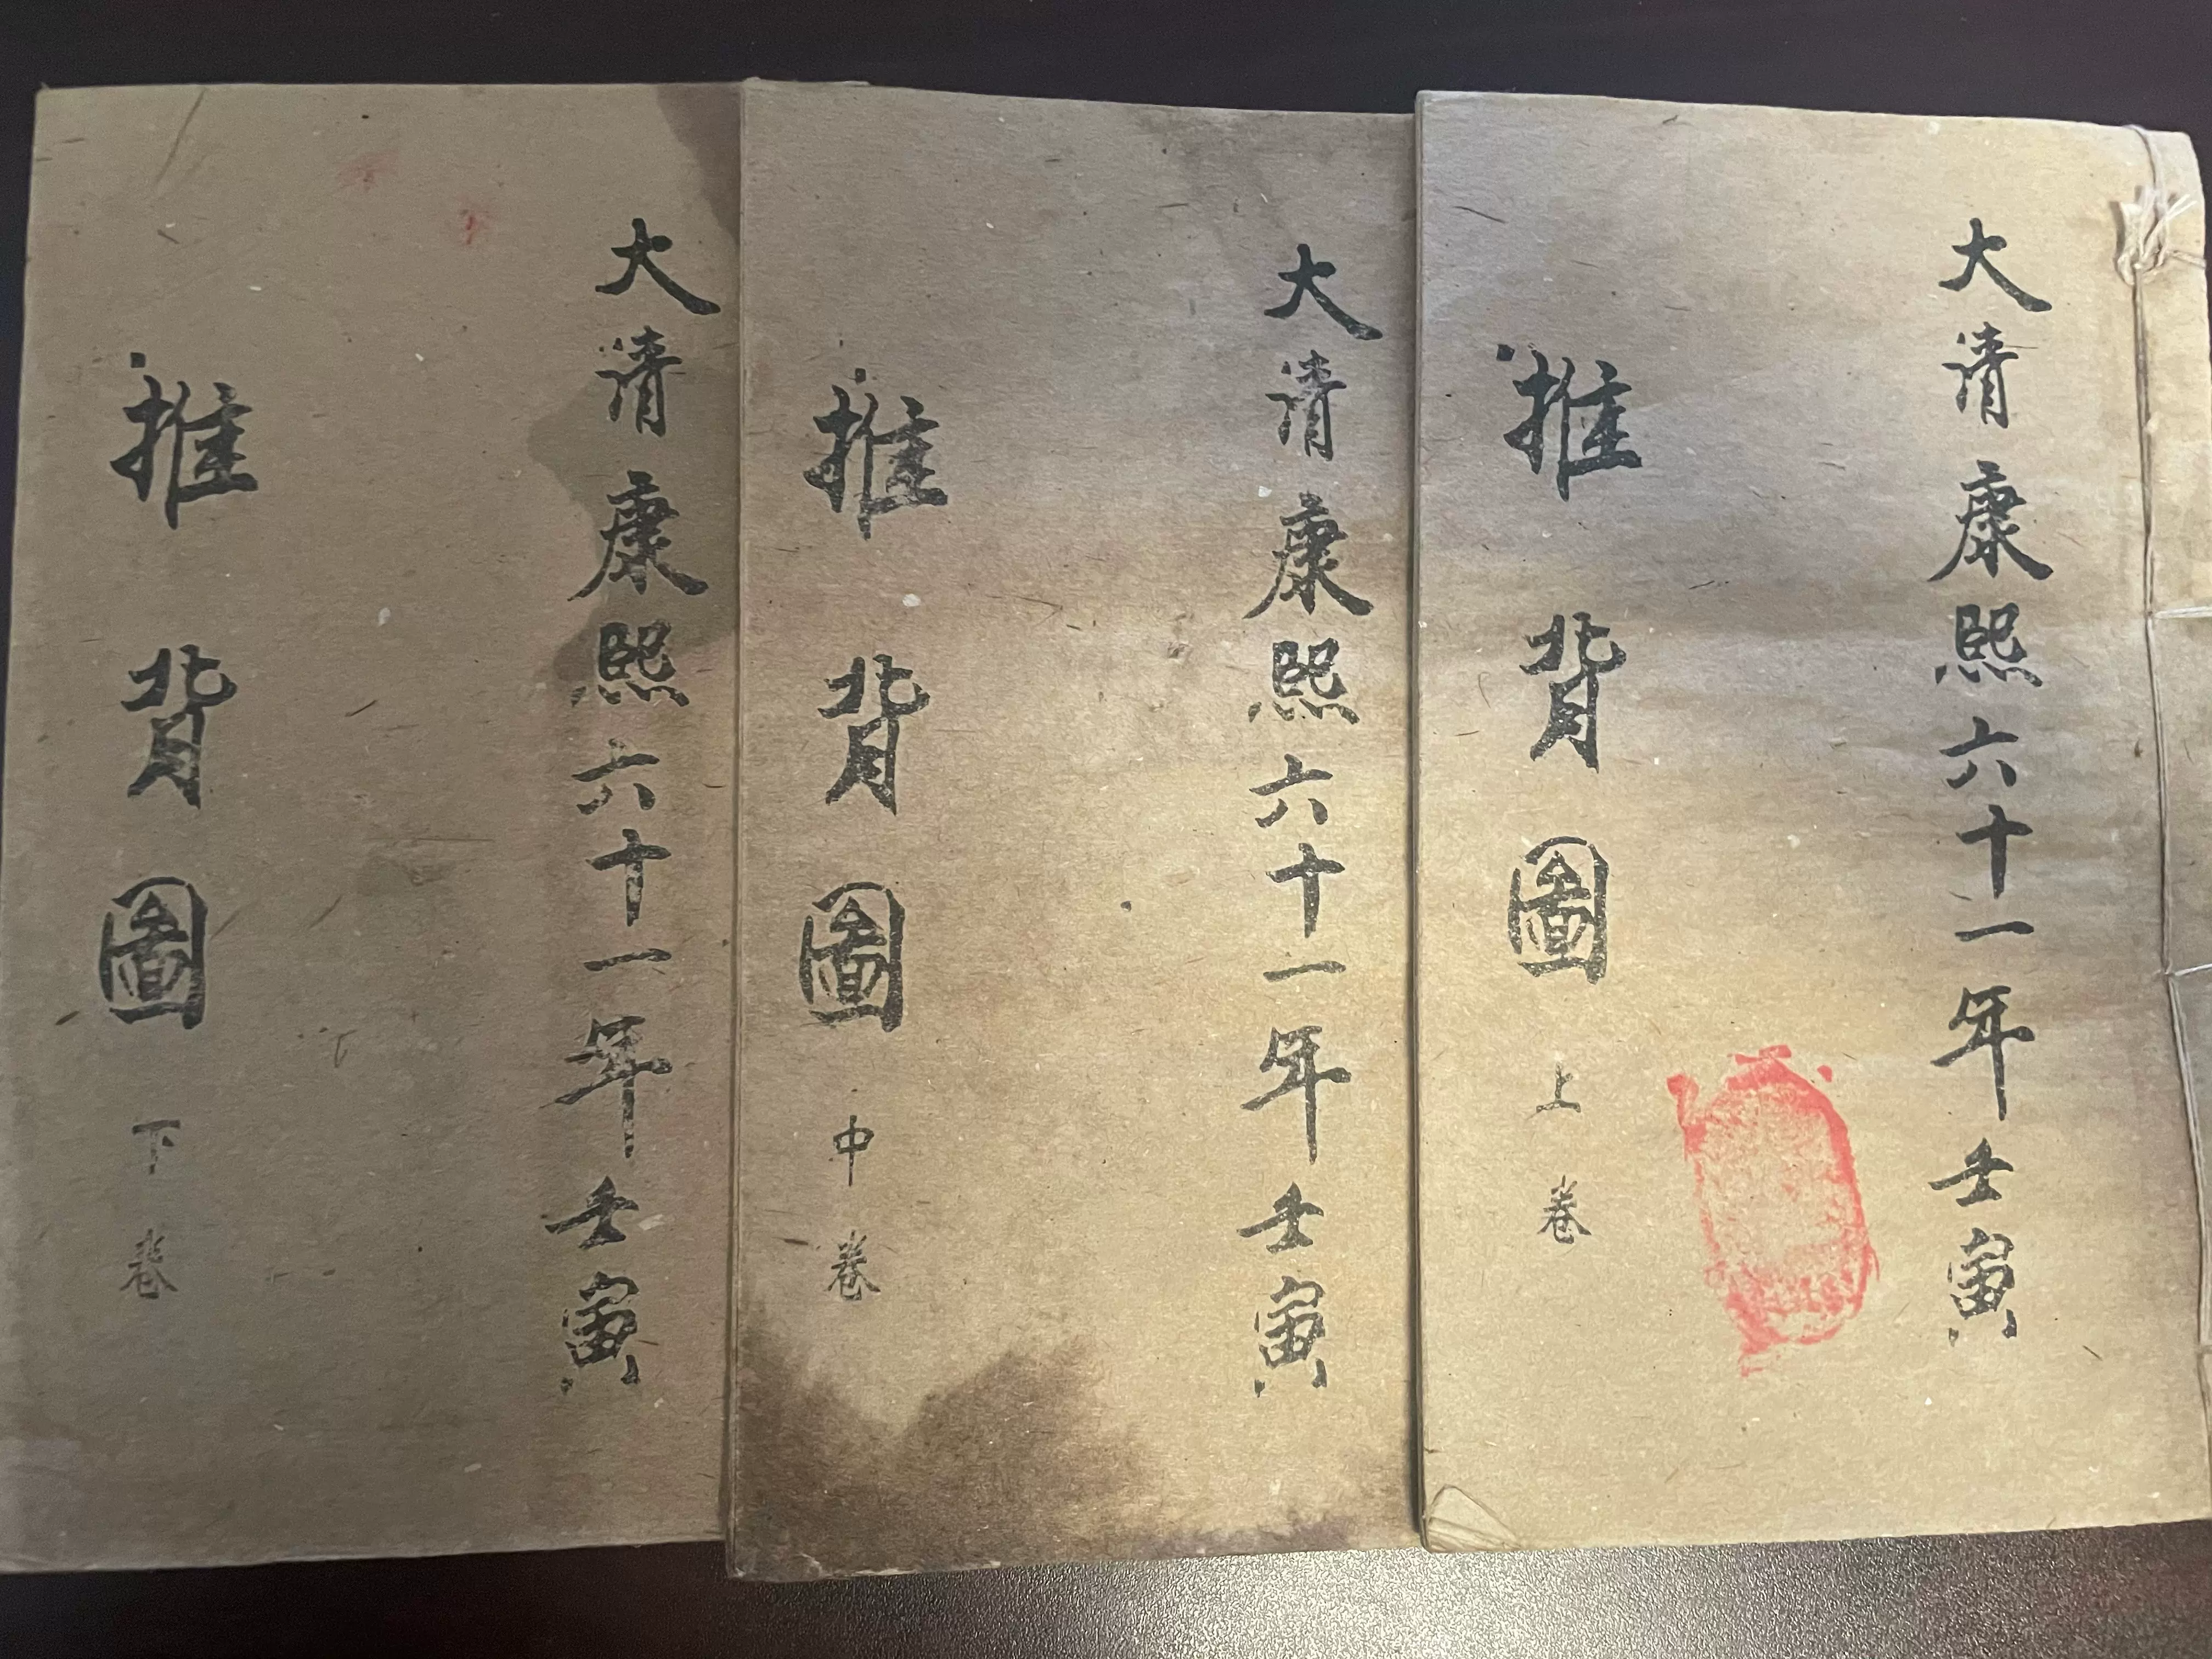 大清康熙六十一年壬寅
推背圖 上卷
大清康熙六十一年壬寅
推背圖 中卷
大清康熙六十一年壬寅
推背圖 下卷